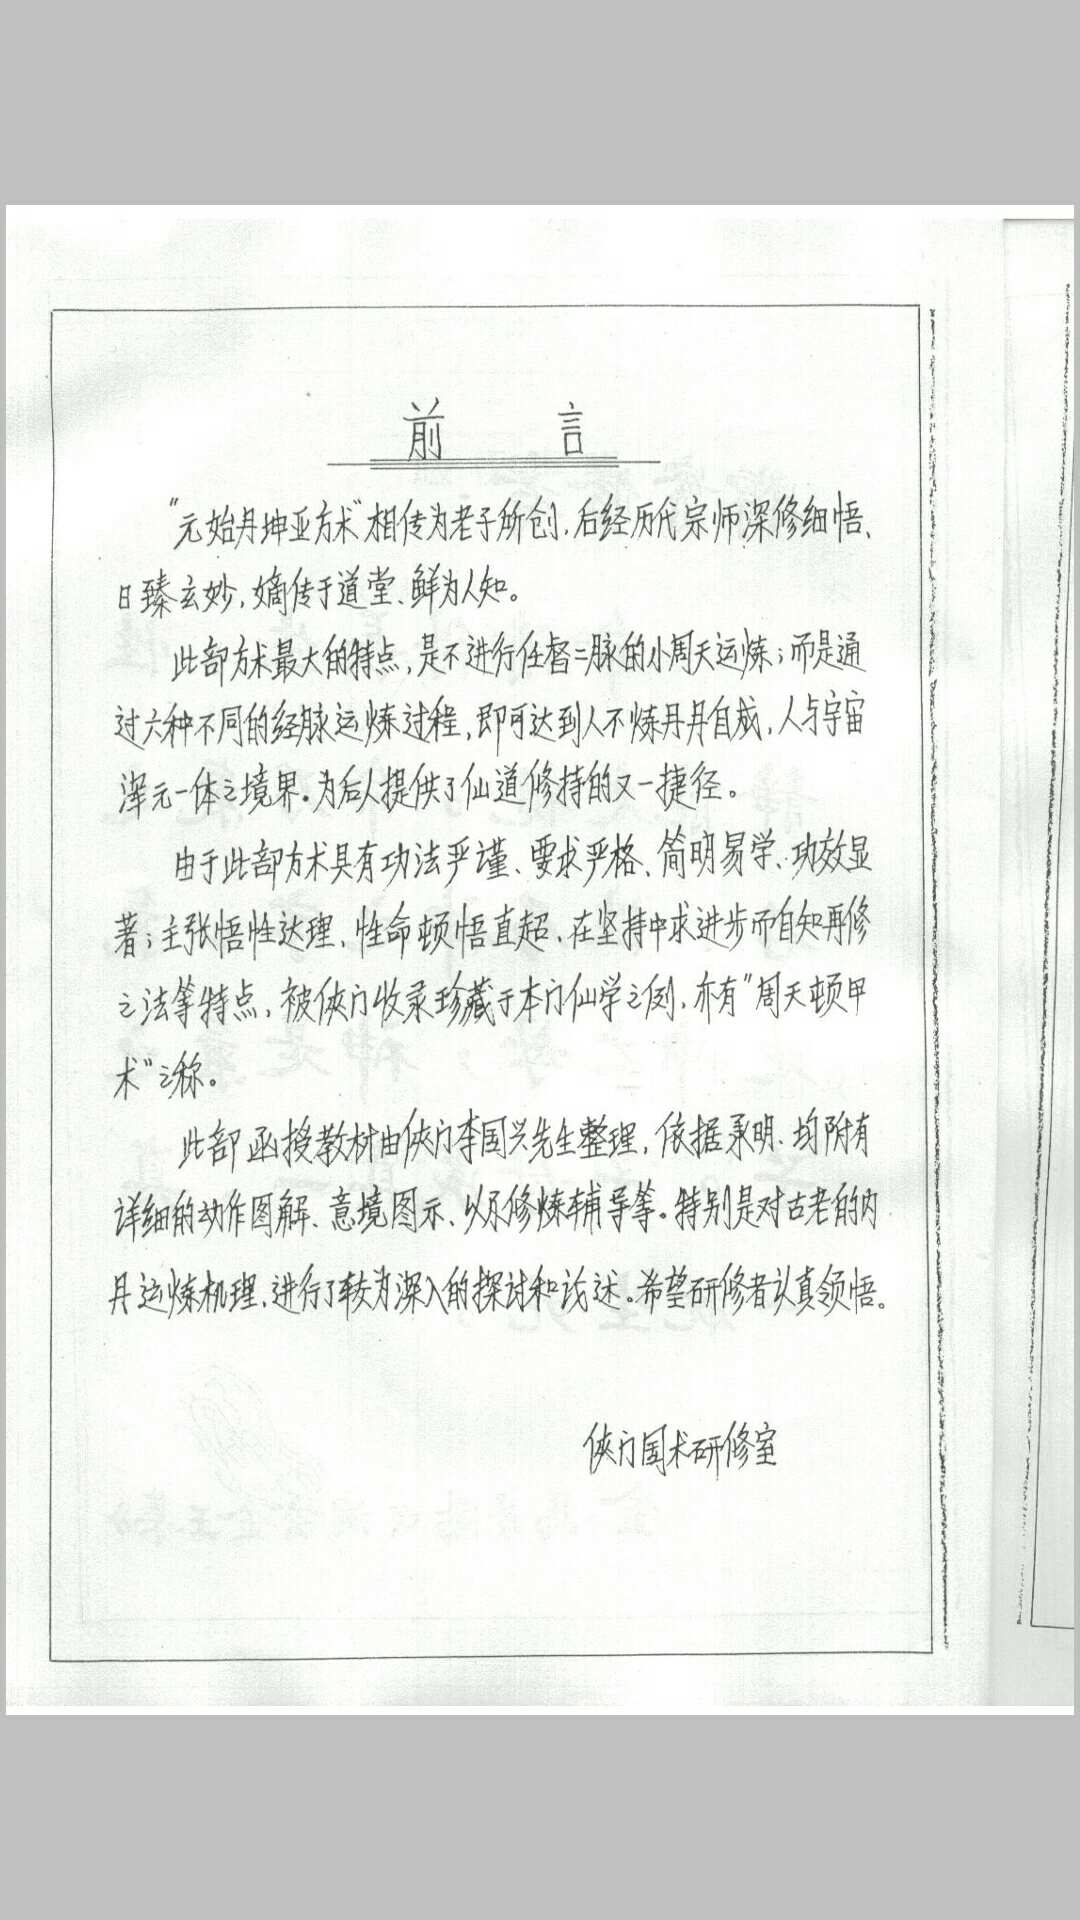 前言
“元始丹坤亚方术”相传为老子所创,后经历代宗师深修细悟、
日臻玄妙,嫡传于道堂、鲜为人知。
此部方术最大的特点,是不进行任督二脉的小周天运炼;而是通
过六种不同的经脉运炼过程,即可达到人不炼丹丹自成,人与宇宙
浑元一体之境界。为后人提供了仙道修持的又一捷径。
由于此部方术具有功法严谨、要求严格、简明易学、功效显
著;主张悟性达理、性命顿悟直超、在坚持中求进步而自知再修
之法等特点,被侠门收录珍藏于本门仙学之例,亦有“周天顿甲
术”之称。
此部函授教材由侠门李国兴先生整理,依据承明、均附有
详细的动作图解、意境图示、以及修炼辅导等。特别是对古老的内
丹运炼机理,进行了较为深入的探讨和论述。希望研修者认真领悟。
侠门国术研修室